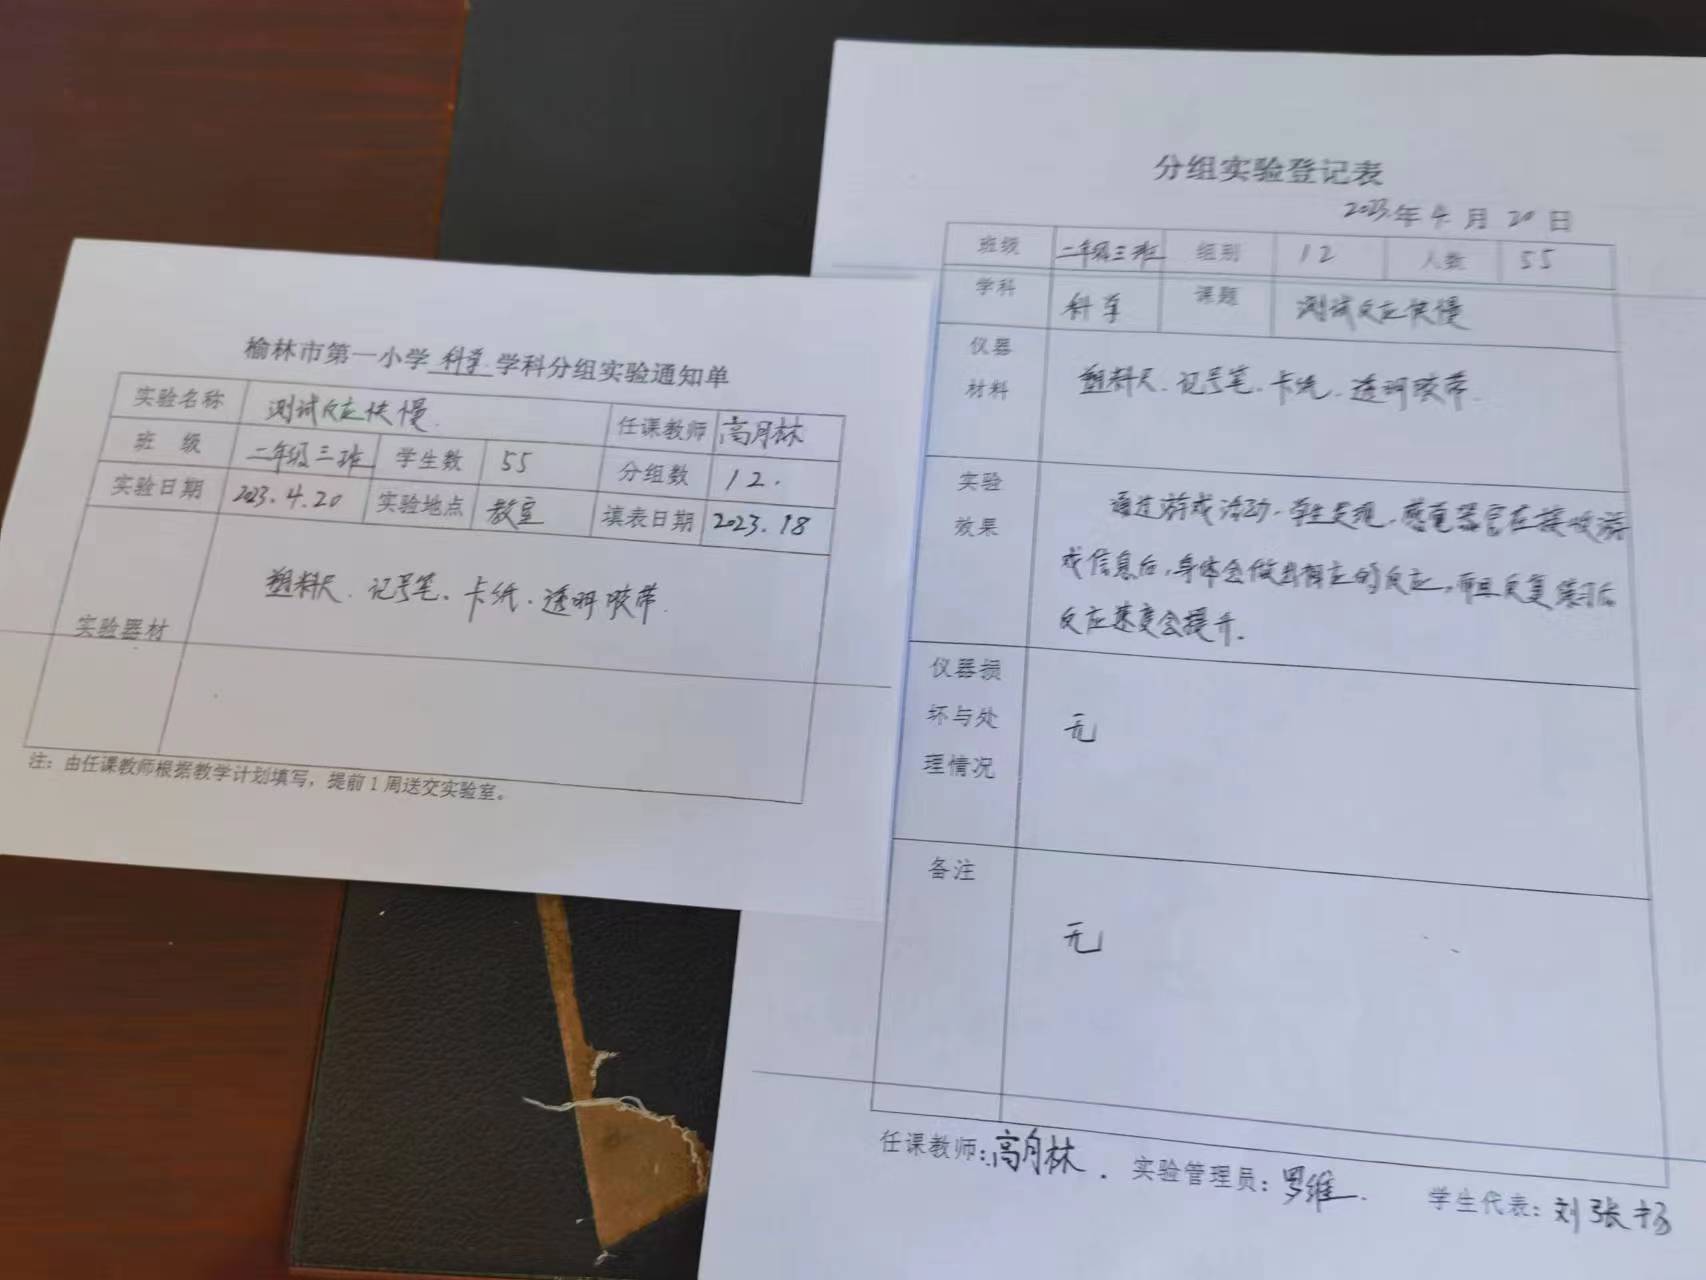 榆林市第一小学 科学 学科分组实验通知单
实验名称 测试反应快慢. 任课教师 高月林
班 级 二年级三班 学生数 55 分组数 12.
实验日期 2023.4.20 实验地点 教室 填表日期 2023.18
实验器材 塑料尺、记号笔、卡纸、透明胶带.
注：由任课教师根据教学计划填写，提前1周送交实验室。
分组实验登记表
2023.年 4 月 20 日
班级 二年级三班 组别 12 人数 55
学科 科学 课题 测试反应快慢
仪器 塑料尺、记号笔、卡纸、透明胶带.
材料
实验 通过游戏活动，学生发现，感觉器官在接收游
效果 戏信息后，身体会做出相应的反应，而且反复练习后
反应速度会提升.
仪器损
坏与处 无
理情况
备注
无
任课教师：高月林. 实验管理员：罗维. 学生代表：刘张扬